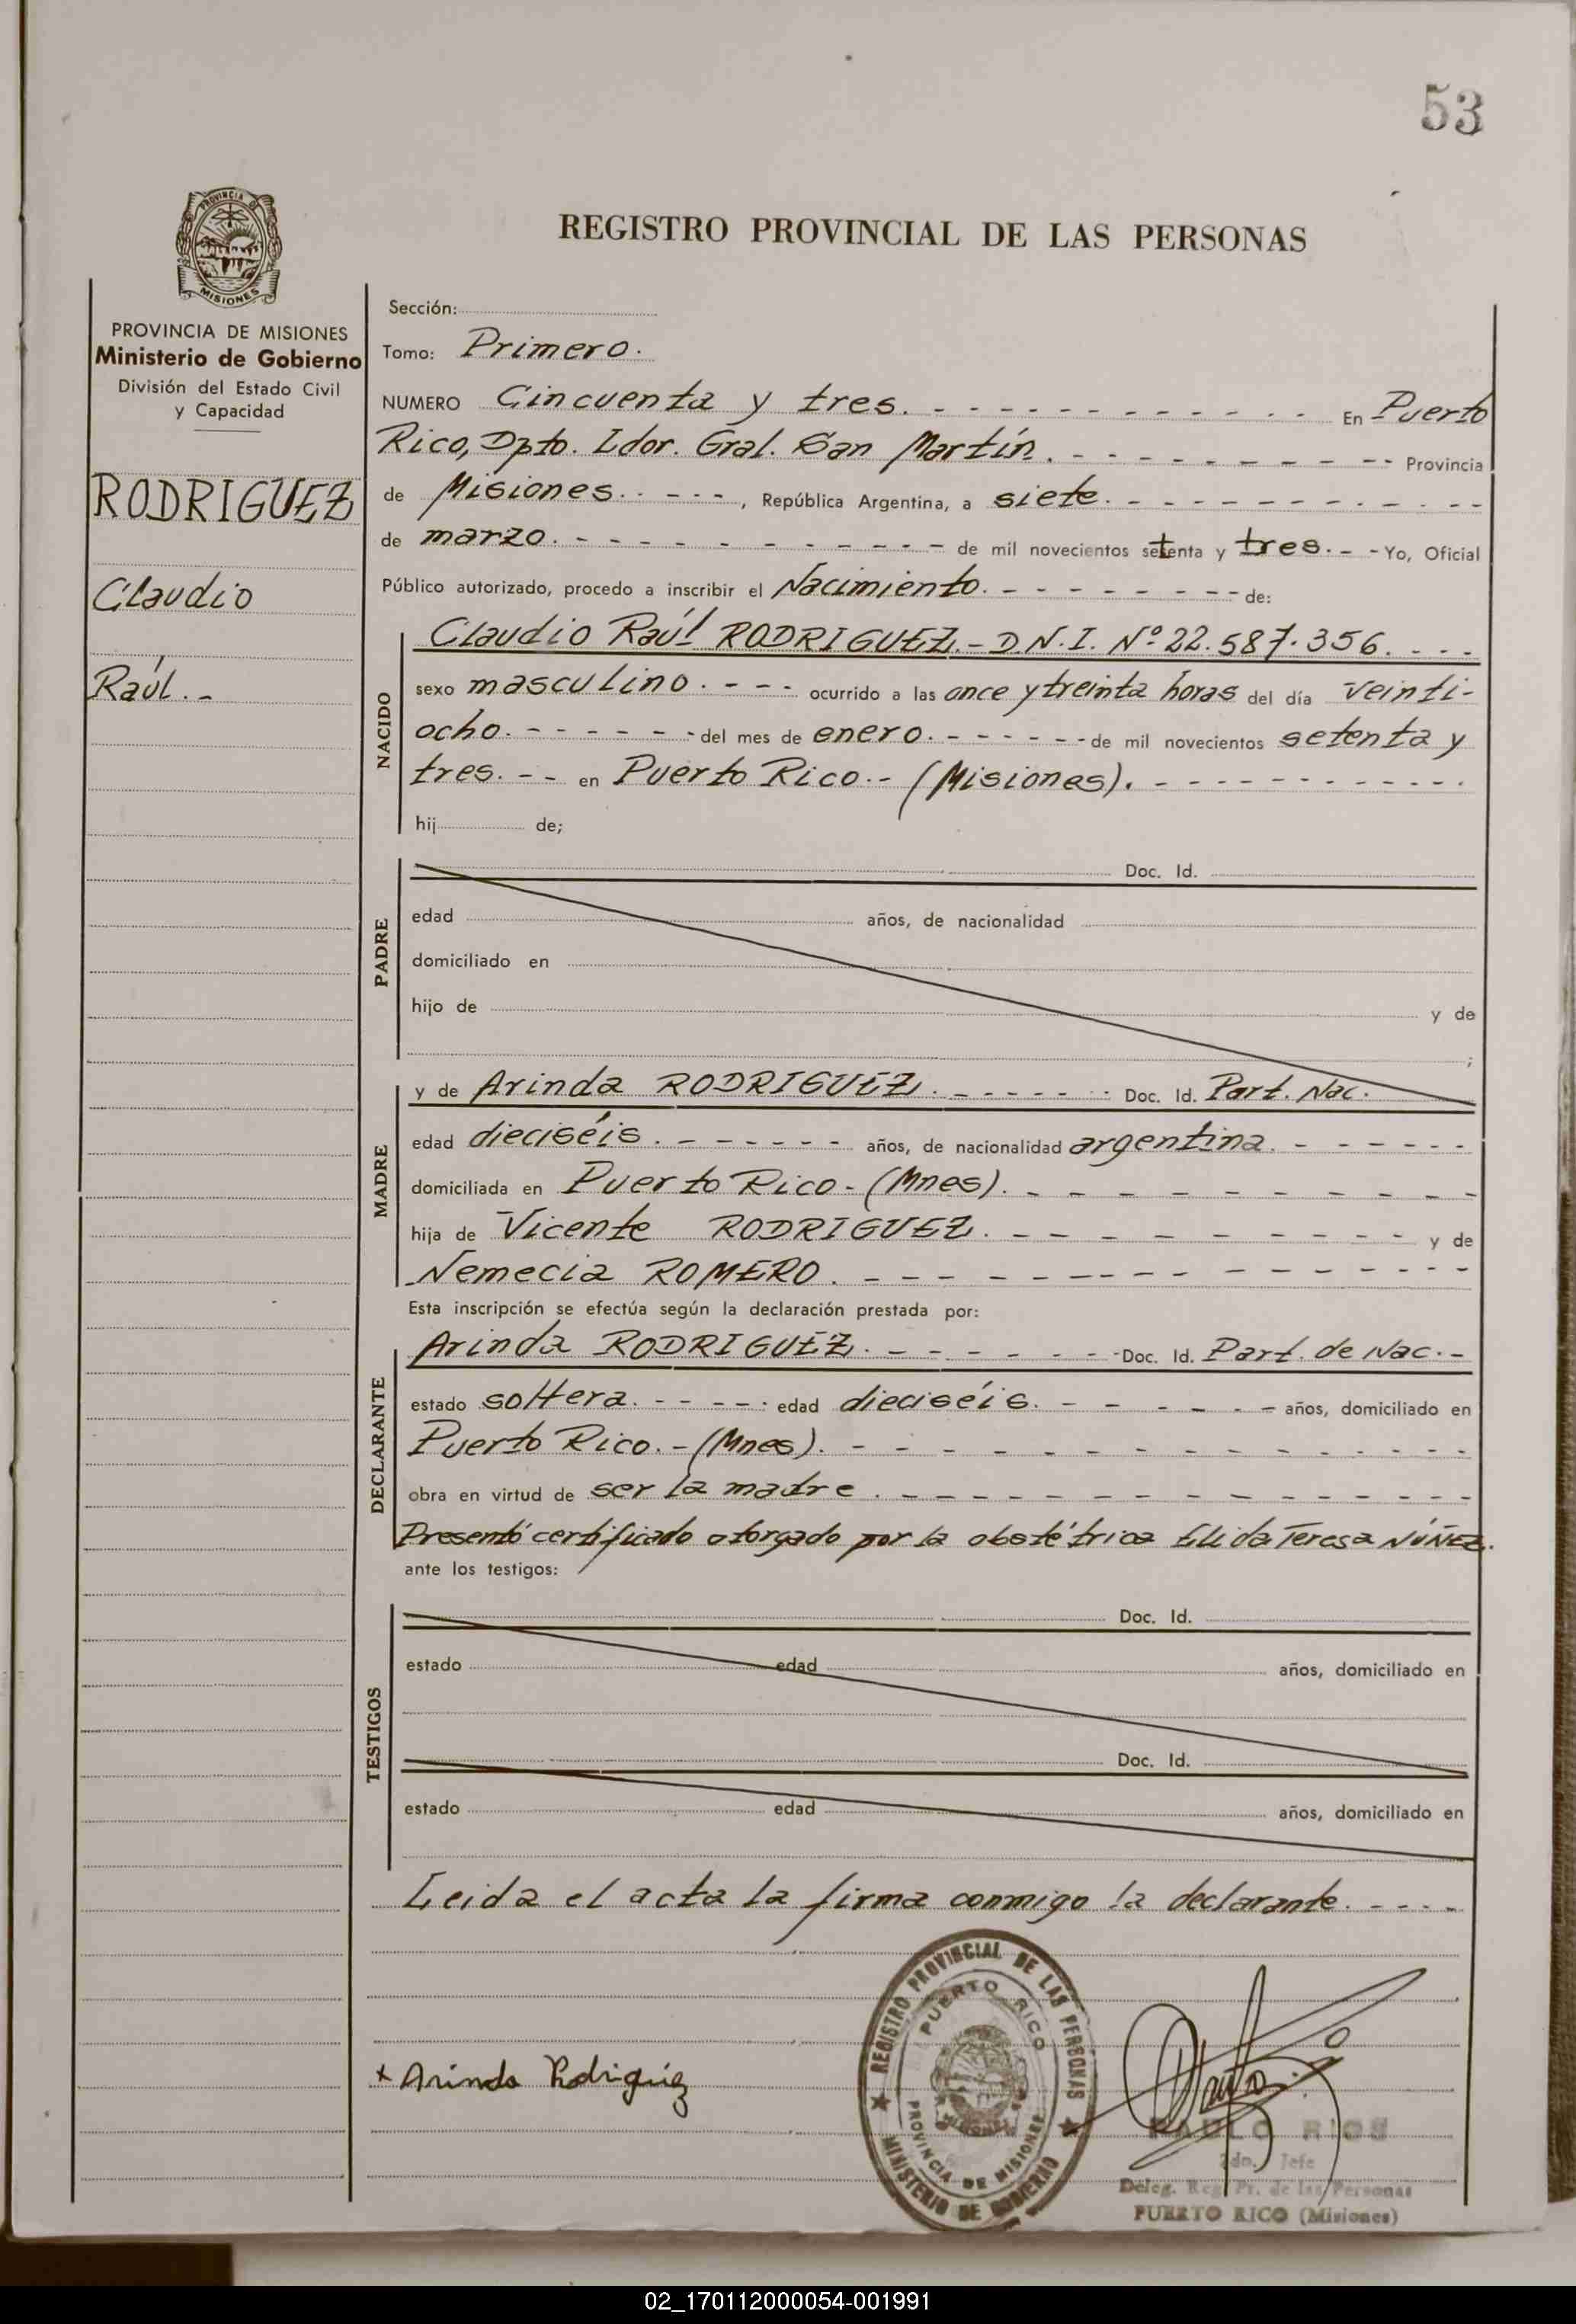 53
REGISTRO PROVINCIAL DE LAS PERSONAS
PROVINCIA DE MISIONES
Ministerio de Gobierno
División del Estado Civil
y Capacidad
RODRIGUEZ
Claudio
Raúl.-
Sección:
Tomo: Primero.
NUMERO Cincuenta y tres. - - - En Puerto
Rico, Dpto. Ldor. Gral. San Martín. - - - Provincia
de Misiones. - - - , República Argentina, a siete. - - -
de marzo. - - - de mil novecientos setenta y tres. - - Yo, Oficial
Público autorizado, procedo a inscribir el Nacimiento. - - - de:
NACIDO
Claudio Raúl RODRIGUEZ.- D.N.I. Nº 22.587.356. - - -
sexo masculino. - - - ocurrido a las once y treinta horas del día veinti-
ocho. - - - del mes de enero. - - - de mil novecientos setenta y
tres. - - en Puerto Rico.- (Misiones). - - -
hij de;
PADRE
Doc. Id.
edad años, de nacionalidad
domiciliado en
hijo de y de
;
MADRE
y de Arinda RODRIGUEZ. - - - Doc. Id. Part. Nac.
edad dieciséis. - - - años, de nacionalidad argentina. - - -
domiciliada en Puerto Rico- (Mnes). - - -
hija de Vicente RODRIGUEZ. - - - y de
Nemecia ROMERO. - - -
Esta inscripción se efectúa según la declaración prestada por:
DECLARANTE
Arinda RODRIGUEZ. - - - Doc. Id. Part. de Nac.-
estado soltera. - - - edad dieciséis. - - - años, domiciliado en
Puerto Rico.-(Mnes). - - -
obra en virtud de ser la madre. - - -
Presentó certificado otorgado por la obstétrica Elida Teresa NÚÑEZ.
ante los testigos:
TESTIGOS
Doc. Id.
estado edad años, domiciliado en
Doc. Id.
estado edad años, domiciliado en
Leida el acta la firma conmigo la declarante. - - -
REGISTRO PROVINCIAL DE LAS PERSONAS
PUERTO RICO
PROVINCIA DE MISIONES
MINISTERIO DE GOBIERNO
x Arinda Rodriguez
PAULO RIOS
Jefe
Deleg. Reg. Pr. de las Personas
PUERTO RICO (Misiones)
02_170112000054-001991